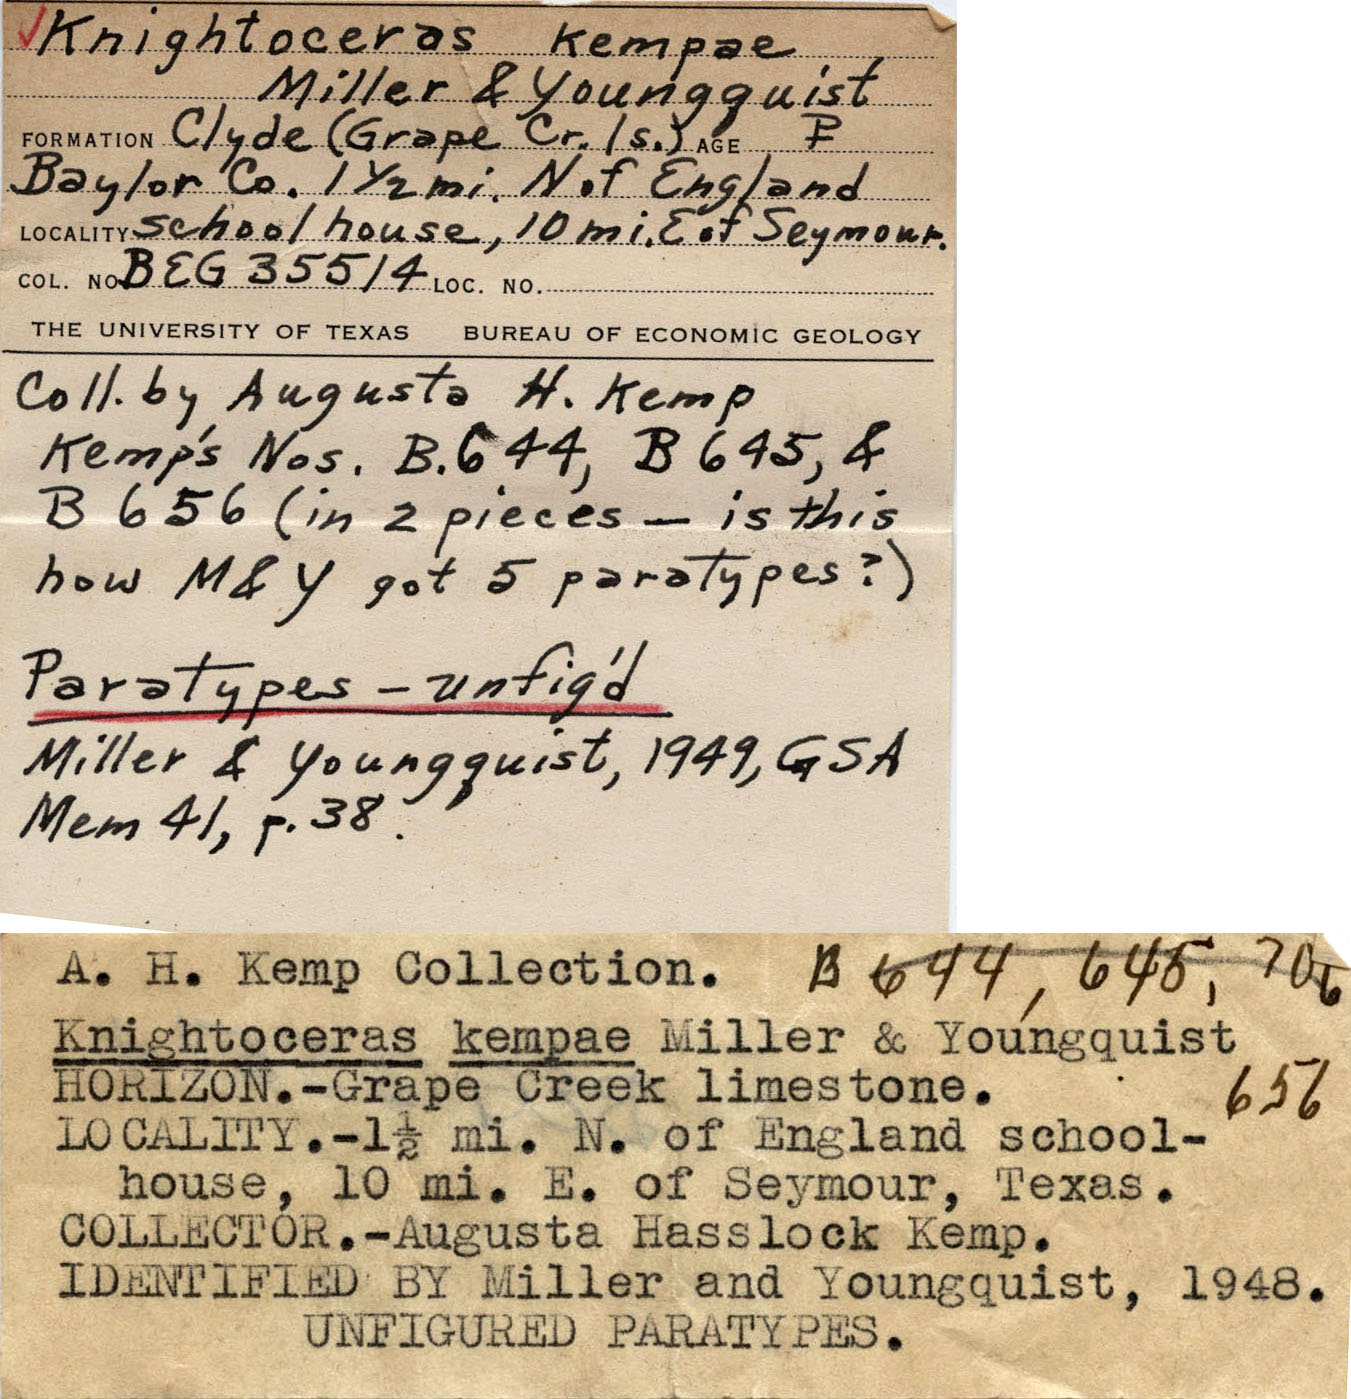 ✓Knightoceras kempae
Miller & Youngquist
FORMATION Clyde (Grape Cr. ls.) AGE P
Baylor Co. 1 1/2 mi. N. of England
LOCALITY school house, 10 mi. E. of Seymour.
COL. NO. BEG 35514 LOC. NO.
THE UNIVERSITY OF TEXAS BUREAU OF ECONOMIC GEOLOGY
Coll. by Augusta H. Kemp
Kemp's Nos. B.644, B 645, &
B 656 (in 2 pieces — is this
how M & Y got 5 paratypes?)
Paratypes - unfig'd
Miller & Youngquist, 1949, GSA
Mem 41, p. 38.
A. H. Kemp Collection. B 644, 645, 706
Knightoceras kempae Miller & Youngquist
HORIZON.-Grape Creek limestone. 656
LOCALITY.-1½ mi. N. of England school-
house, 10 mi. E. of Seymour, Texas.
COLLECTOR.-Augusta Hasslock Kemp.
IDENTIFIED BY Miller and Youngquist, 1948.
UNFIGURED PARATYPES.